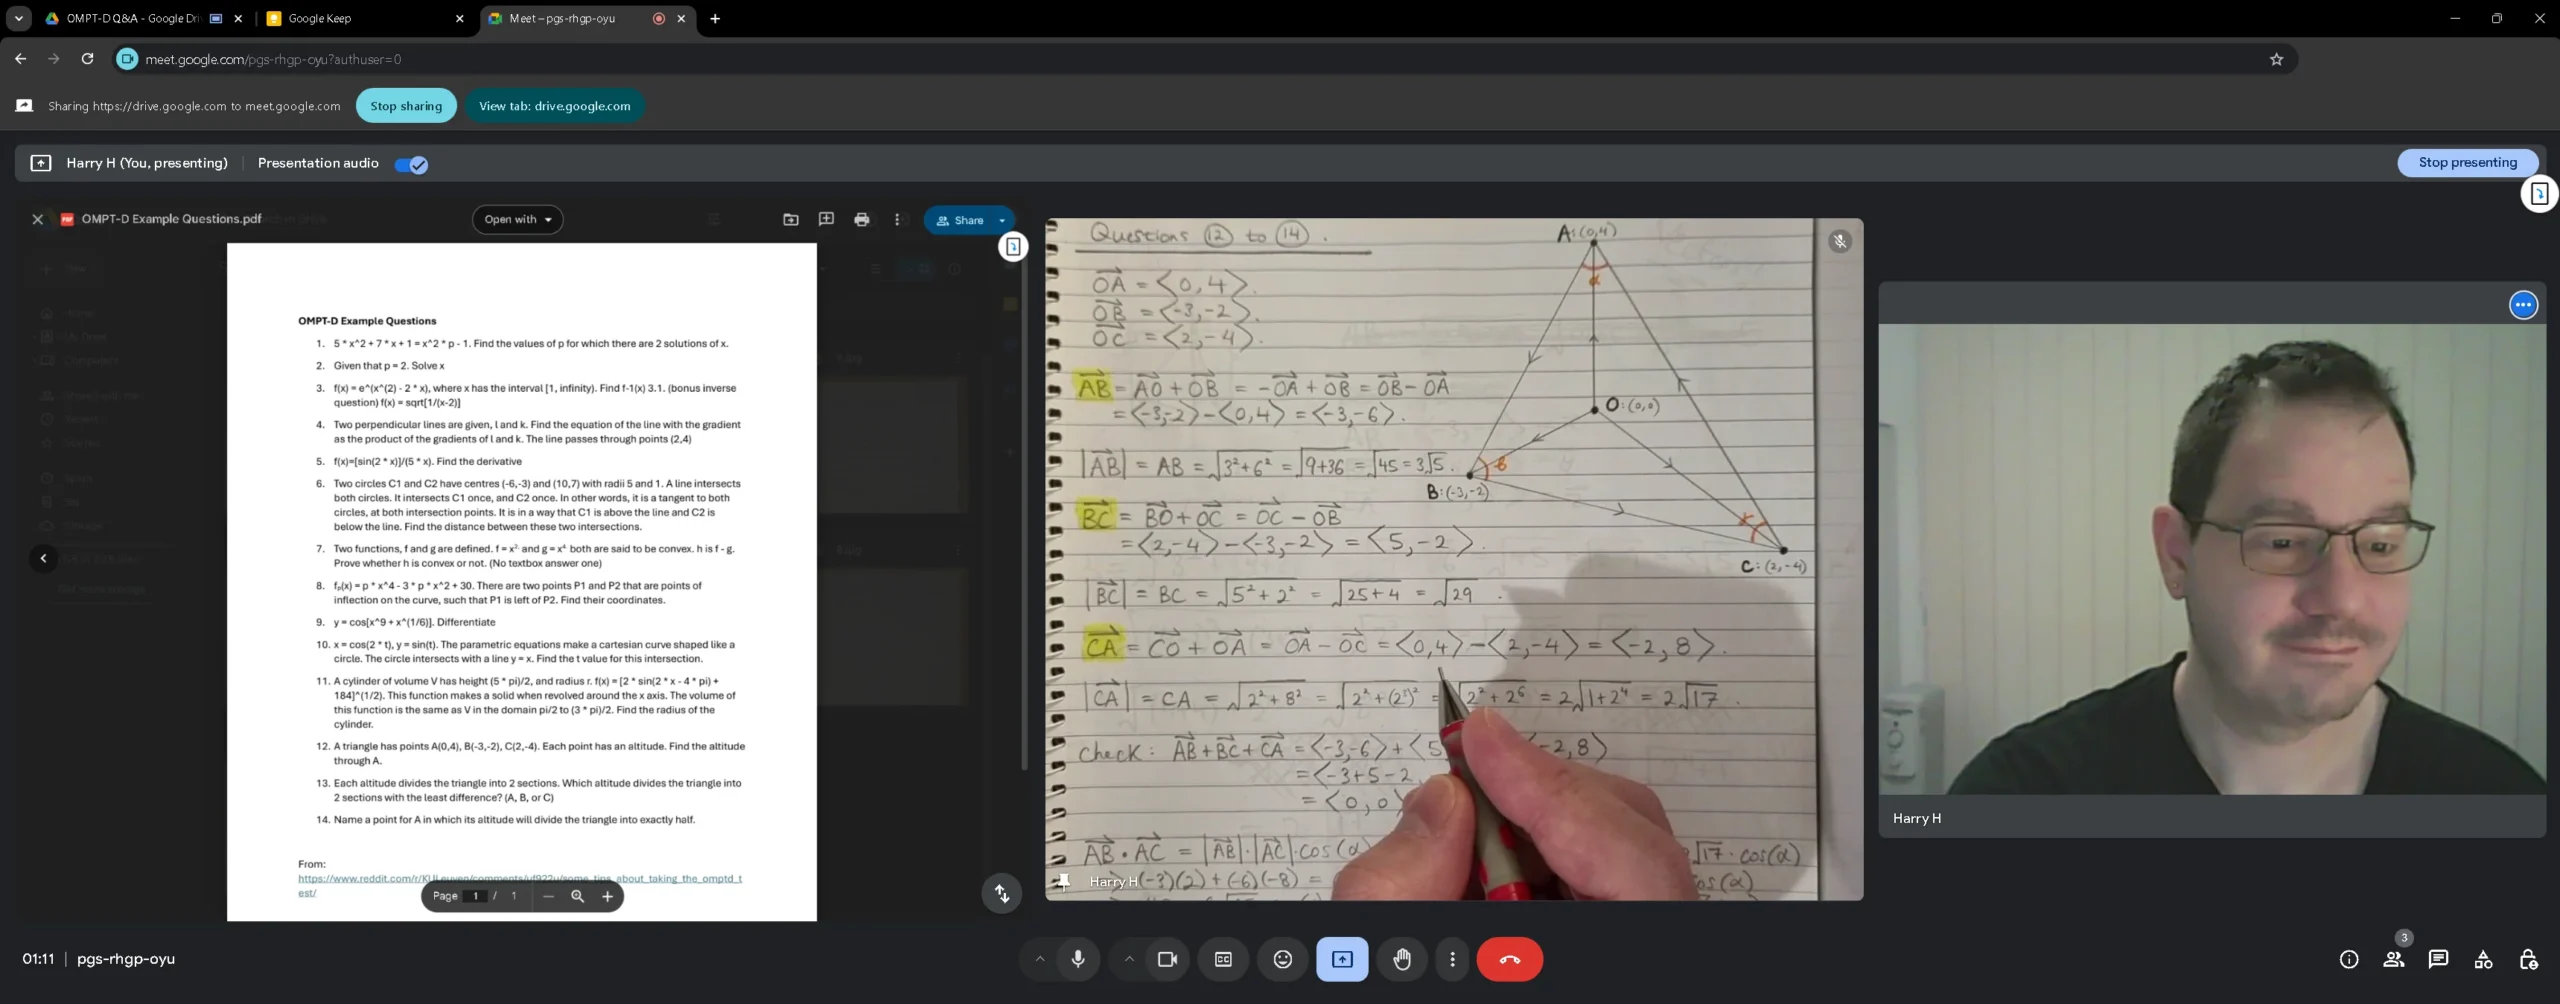 OMPT-D Q&A - Google Dri
Google Keep
Meet – pgs-rhgp-oyu
meet.google.com/pgs-rhgp-oyu?authuser=0
Sharing https://drive.google.com to meet.google.com
Stop sharing
View tab: drive.google.com
Harry H (You, presenting)
Presentation audio
Stop presenting
OMPT-D Example Questions.pdf
Open with
Share
OMPT-D Example Questions
1. 5 * x^2 + 7 * x + 1 = x^2 * p - 1. Find the values of p for which there are 2 solutions of x.
2. Given that p = 2. Solve x
3. f(x) = e^(x^(2) - 2 * x), where x has the interval [1, infinity). Find f-1(x) 3.1. (bonus inverse
question) f(x) = sqrt[1/(x-2)]
4. Two perpendicular lines are given, l and k. Find the equation of the line with the gradient
as the product of the gradients of l and k. The line passes through points (2,4)
5. f(x)=[sin(2 * x)]/(5 * x). Find the derivative
6. Two circles C1 and C2 have centres (-6,-3) and (10,7) with radii 5 and 1. A line intersects
both circles. It intersects C1 once, and C2 once. In other words, it is a tangent to both
circles, at both intersection points. It is in a way that C1 is above the line and C2 is
below the line. Find the distance between these two intersections.
7. Two functions, f and g are defined. f = x² and g = x⁴ both are said to be convex. h is f - g.
Prove whether h is convex or not. (No textbox answer one)
8. fₚ(x) = p * x^4 - 3 * p * x^2 + 30. There are two points P1 and P2 that are points of
inflection on the curve, such that P1 is left of P2. Find their coordinates.
9. y = cos[x^9 + x^(1/6)]. Differentiate
10. x = cos(2 * t), y = sin(t). The parametric equations make a cartesian curve shaped like a
circle. The circle intersects with a line y = x. Find the t value for this intersection.
11. A cylinder of volume V has height (5 * pi)/2, and radius r. f(x) = [2 * sin(2 * x - 4 * pi) +
184]^(1/2). This function makes a solid when revolved around the x axis. The volume of
this function is the same as V in the domain pi/2 to (3 * pi)/2. Find the radius of the
cylinder.
12. A triangle has points A(0,4), B(-3,-2), C(2,-4). Each point has an altitude. Find the altitude
through A.
13. Each altitude divides the triangle into 2 sections. Which altitude divides the triangle into
2 sections with the least difference? (A, B, or C)
14. Name a point for A in which its altitude will divide the triangle into exactly half.
From:
https://www.reddit.com/r/KULeuven/comments/uf922u/some_tips_about_taking_the_omptd_t
est/
Page 1 / 1
Questions 12 to 14.
A:(0,4)
α
OA = <0, 4>.
OB = <-3, -2>.
OC = <2, -4>.
O:(0,0)
AB = AO + OB = -OA + OB = OB - OA
= <-3,-2> - <0,4> = <-3,-6>.
|AB| = AB = √3²+6² = √9+36 = √45 = 3√5.
B:(-3,-2)
BC = BO + OC = OC - OB
= <2,-4> - <-3,-2> = <5,-2>.
C:(2,-4)
|BC| = BC = √5²+2² = √25+4 = √29.
CA = CO + OA = OA - OC = <0,4> - <2,-4> = <-2,8>.
|CA| = CA = √2²+8² = √2²+(2³)² = √2²+2⁶ = 2√1+2⁴ = 2√17.
check: AB + BC + CA = <-3,-6> + <5 -2,8>
= <-3+5-2
= <0,0>
AB · AC = |AB|·|AC|·cos(α √17 · cos(α)
(-3)(2) + (-6)(-8) = cos(α)
Harry H
Harry H
01:11 | pgs-rhgp-oyu
3